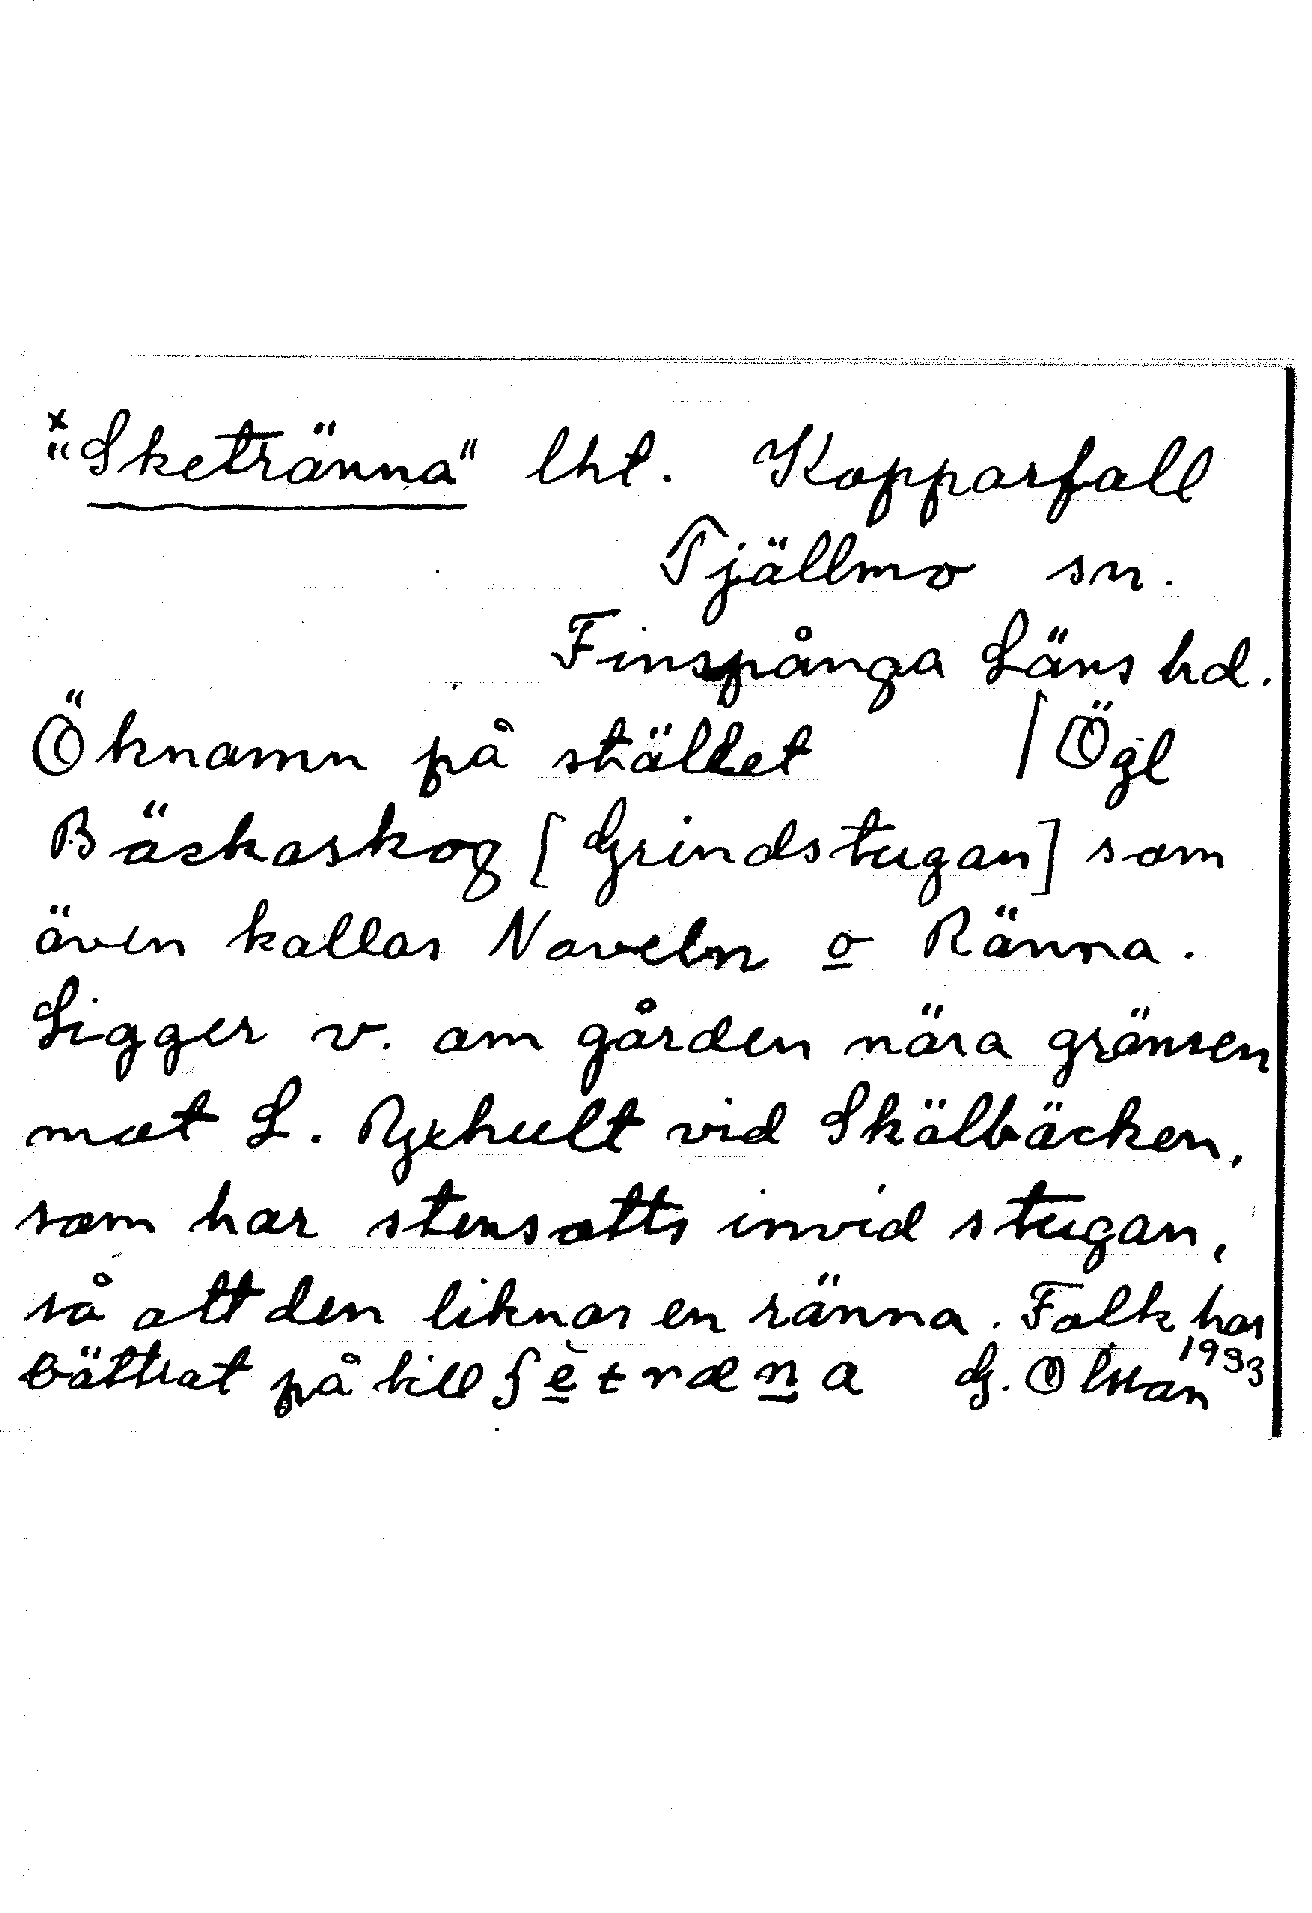 x
"Sketränna" lht. Kopparfall
Tjällmo sn.
Finspånga Läns hd.
Öknamn på stället / Ögl
Bäckaskog [Grindstugan] som
även kallas Naveln o Ränna.
Ligger v. om gården nära gränsen
mot L. Ryxhult vid Skälbäcken,
som har stensatts invid stugan,
så att den liknar en ränna. Folk har
bättrat på till ʃètræna G. Olsson 1933